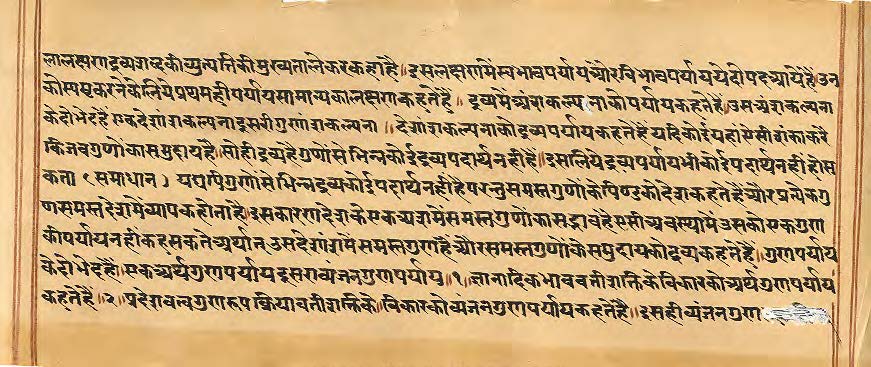 लालक्षणद्रव्यशब्दकीव्युत्पत्तिकीमुख्यतालेकरकहाहै॥इसलक्षणमेंस्वभावपर्यायऔरविभावपर्याययेदोपदआयेहैं॥उन
कोस्पष्टकरनेकेलियेप्रथमहीपर्यायसामान्यकालक्षणकहतेहैं॥द्रव्यमेंअंशकल्पनाकोपर्यायकहतेहैं॥उसअंशकल्पना
केदोभेदहैंएकदेशांशकल्पनादूसरीगुणांशकल्पना॥देशांशकल्पनाकोद्रव्यपर्यायकहतेहैंयदिकोईयहांऐसीशंकाकरै
किजबगुणोंकासमुदायहै॥सोहीद्रव्यहैगुणोंसेभिन्नकोईद्रव्यपदार्थनहीहै॥इसलियेद्रव्यपर्यायभीकोईपदार्थनहीहोस
कता(समाधान)यद्यपिगुणोंसेभिन्नद्रव्यकोईपदार्थनहीहैपरन्तुसमस्तगुणोंकेपिण्डकोदेशकहतेहैंऔरप्रत्येकगु
णसमस्तदेशमेंव्यापकहोताहै॥इसकारणदेशकेएकअंशमेंसमस्तगुणोंकासद्भावहैऐसीअवस्थामेंउसकोएकगुण
कीपर्यायनहींकहसकतेअर्थात्उसदेशांशमेंसमस्तगुणहैंऔरसमस्तगुणोंकेसमुदायकोद्रव्यकहतेहैं॥गुणपर्याय
केदोभेदहैं॥एकअर्थगुणपर्यायदूसराव्यंजनगुणपर्याय॥१॥ज्ञानादिकभाववतीशक्तिकेविकारकोअर्थगुणपर्याय
कहतेहैं॥२॥प्रदेशवत्वगुणरूपक्रियावतीशक्तिके॥विकारकोव्यंजनगुणपर्यायकहतेहै॥इसहीव्यंजनगुण